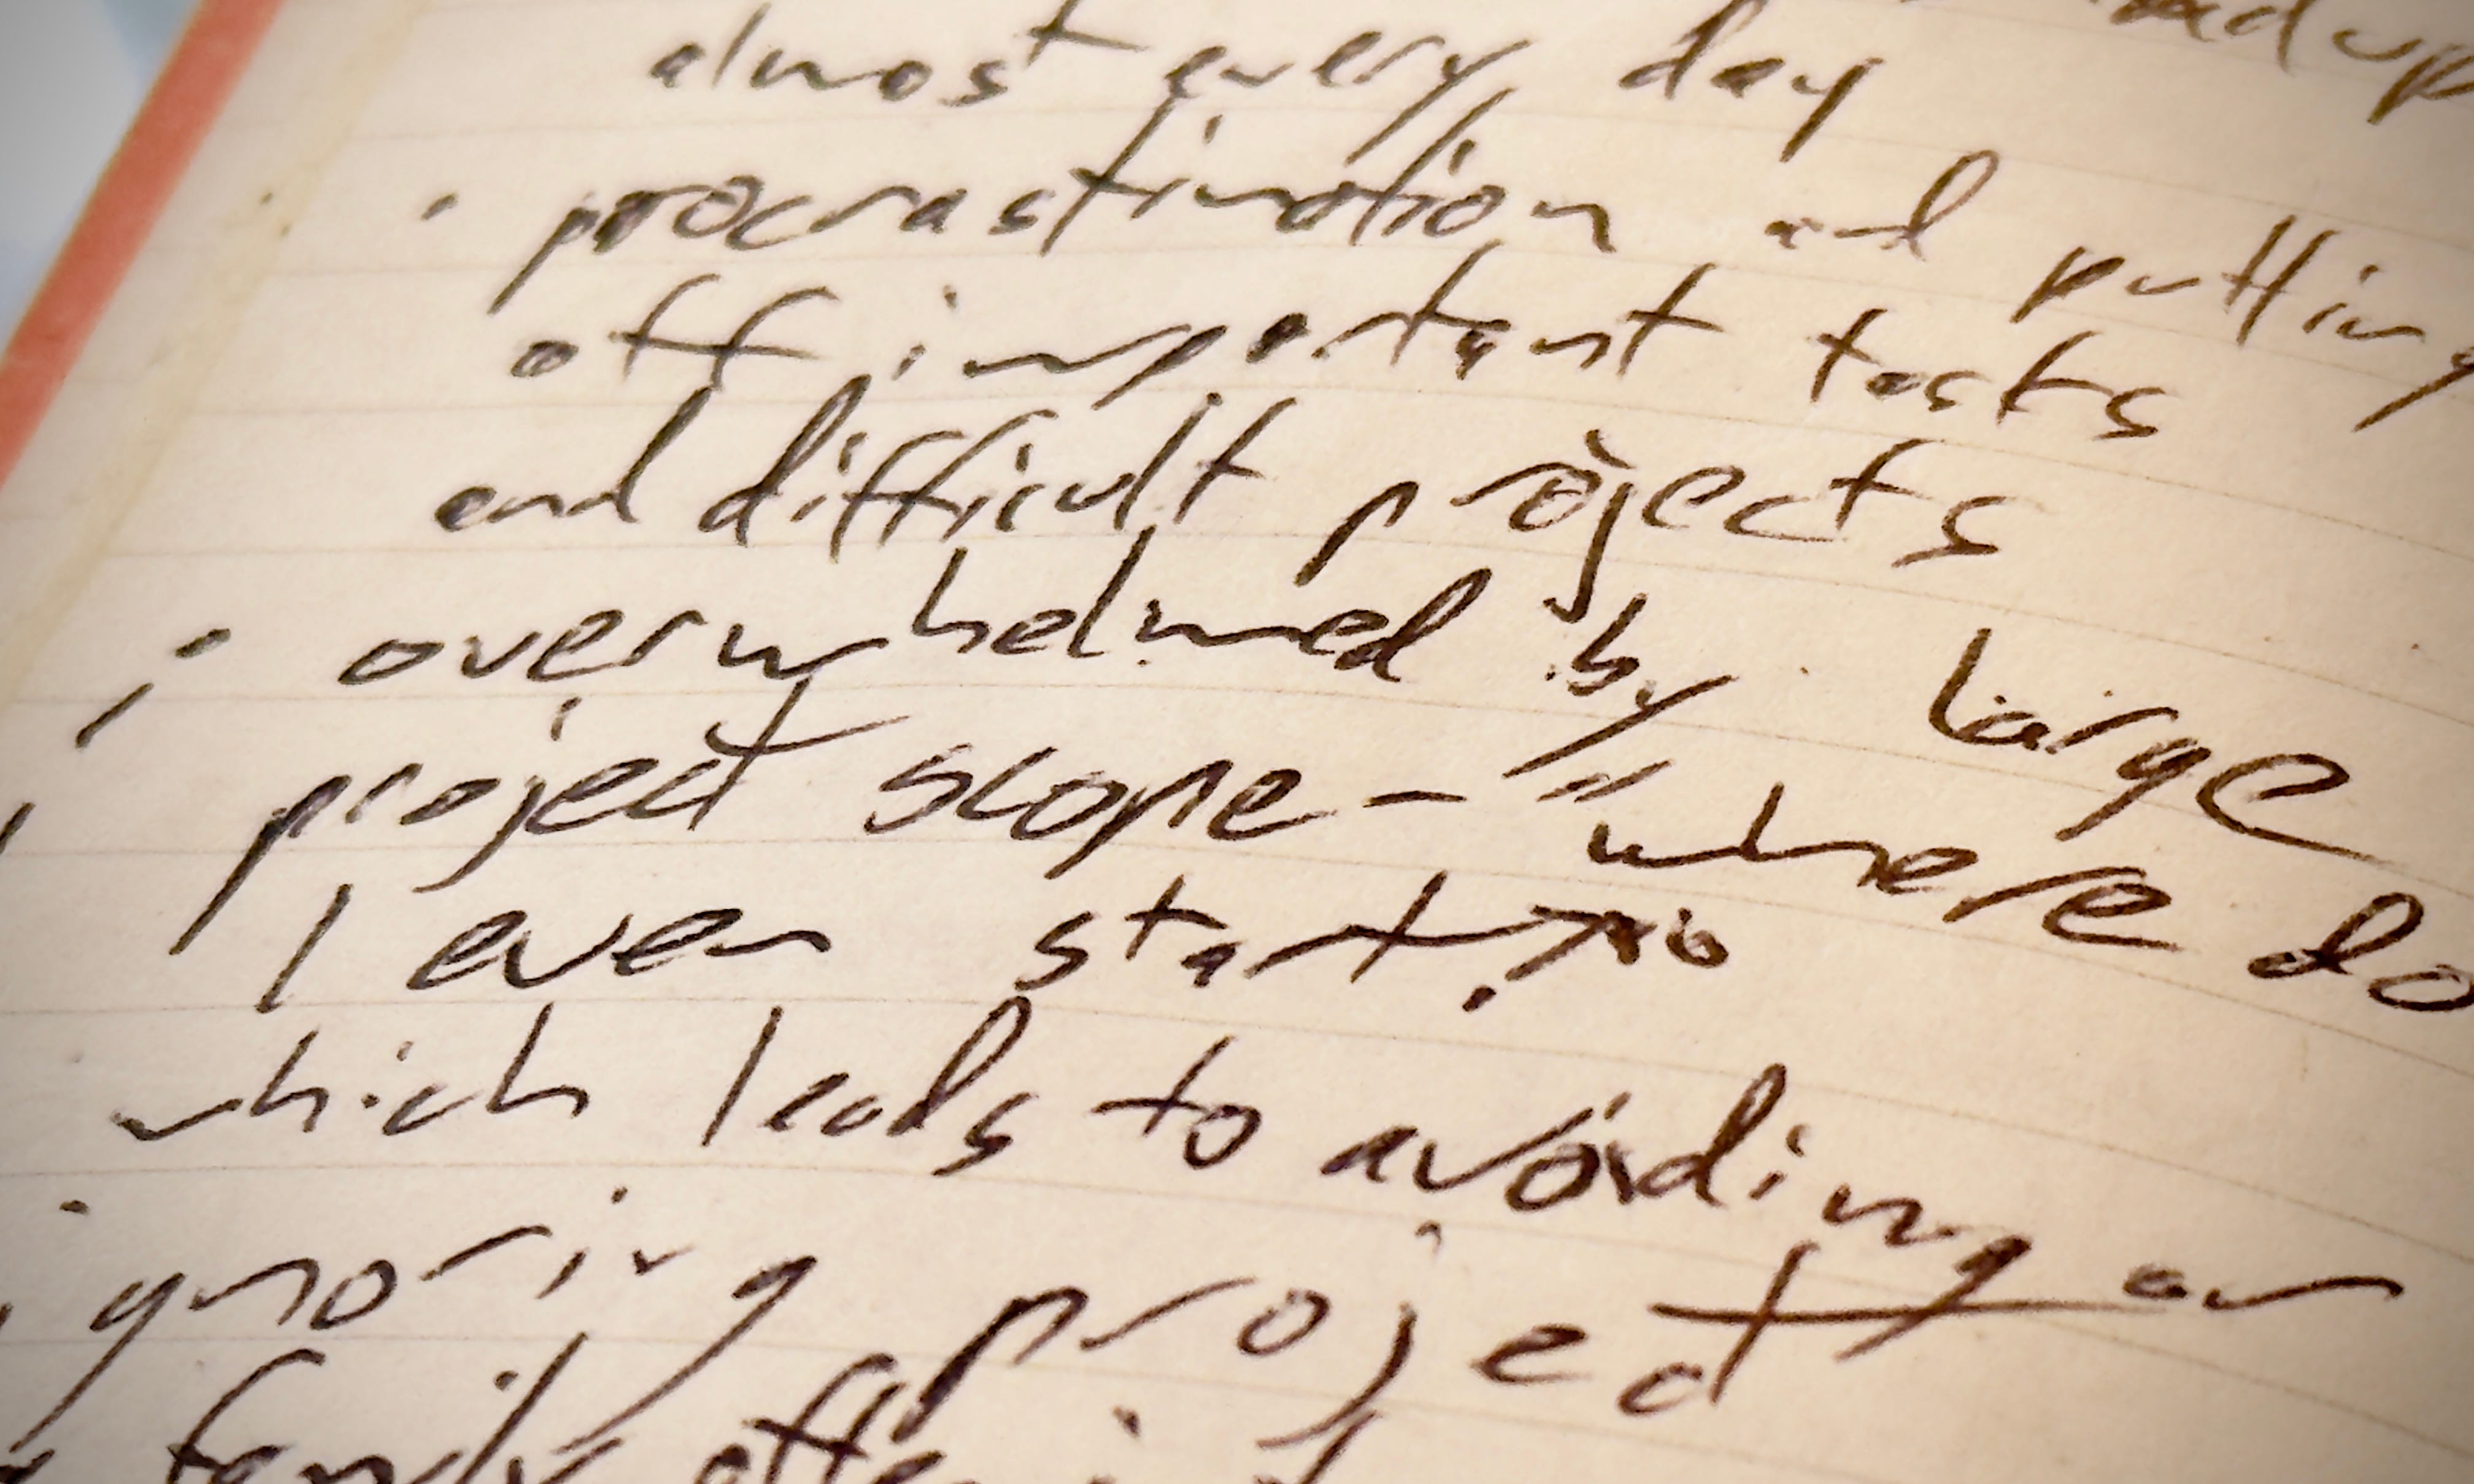 almost every day
• procrastination and putting
off important tasks
and difficult projects
• overwhelmed by large
project scope - "where do
I even start?"
which leads to avoiding or
ignoring project
family often